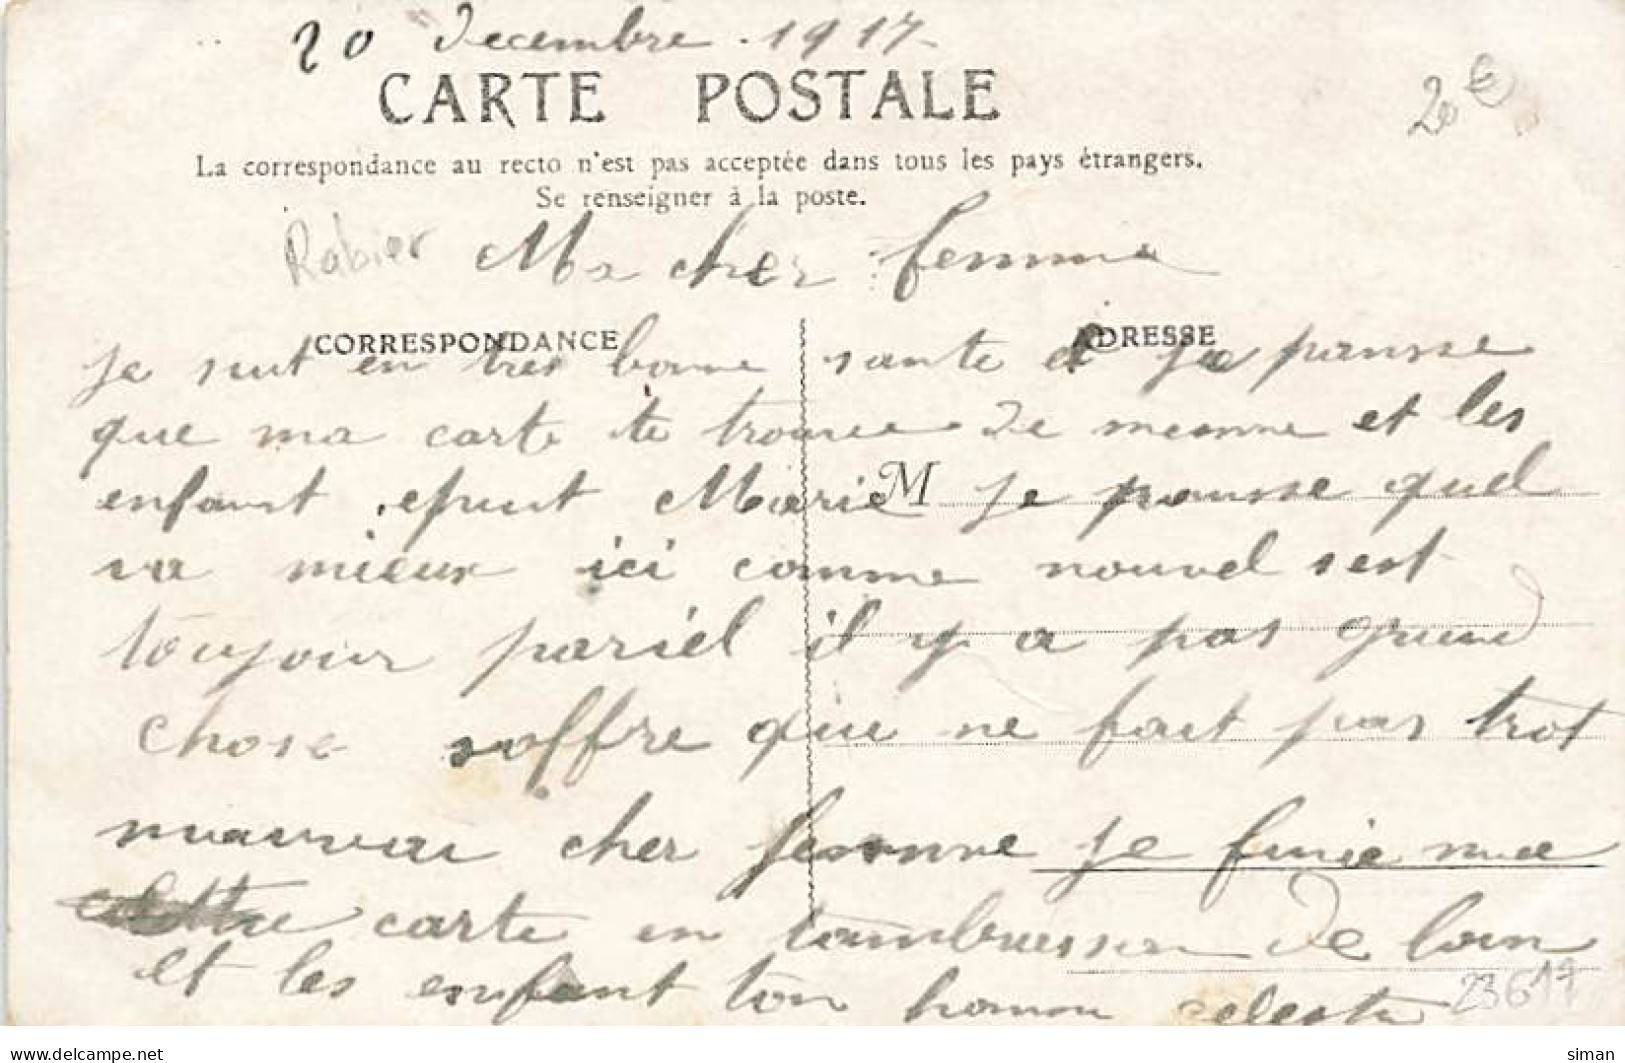 20 Decembre . 1917
CARTE POSTALE
20 €
La correspondance au recto n'est pas acceptée dans tous les pays étrangers.
Se renseigner à la poste.
Rabier
Ma cher femme
CORRESPONDANCE
ADRESSE
je suit en tres bonne sante et je pansse
que ma carte te trouvee de mesme et les
enfant Marie M je pansse quel
va mieux ici comme nouvel sest
toujour pariel il y a pas grand
chose soffre que ne fait pas trot
mauvai cher femme je finie ma
carte en tambrassan de loin
et les enfant ton homme celestin
23617
www.delcampe.net
siman